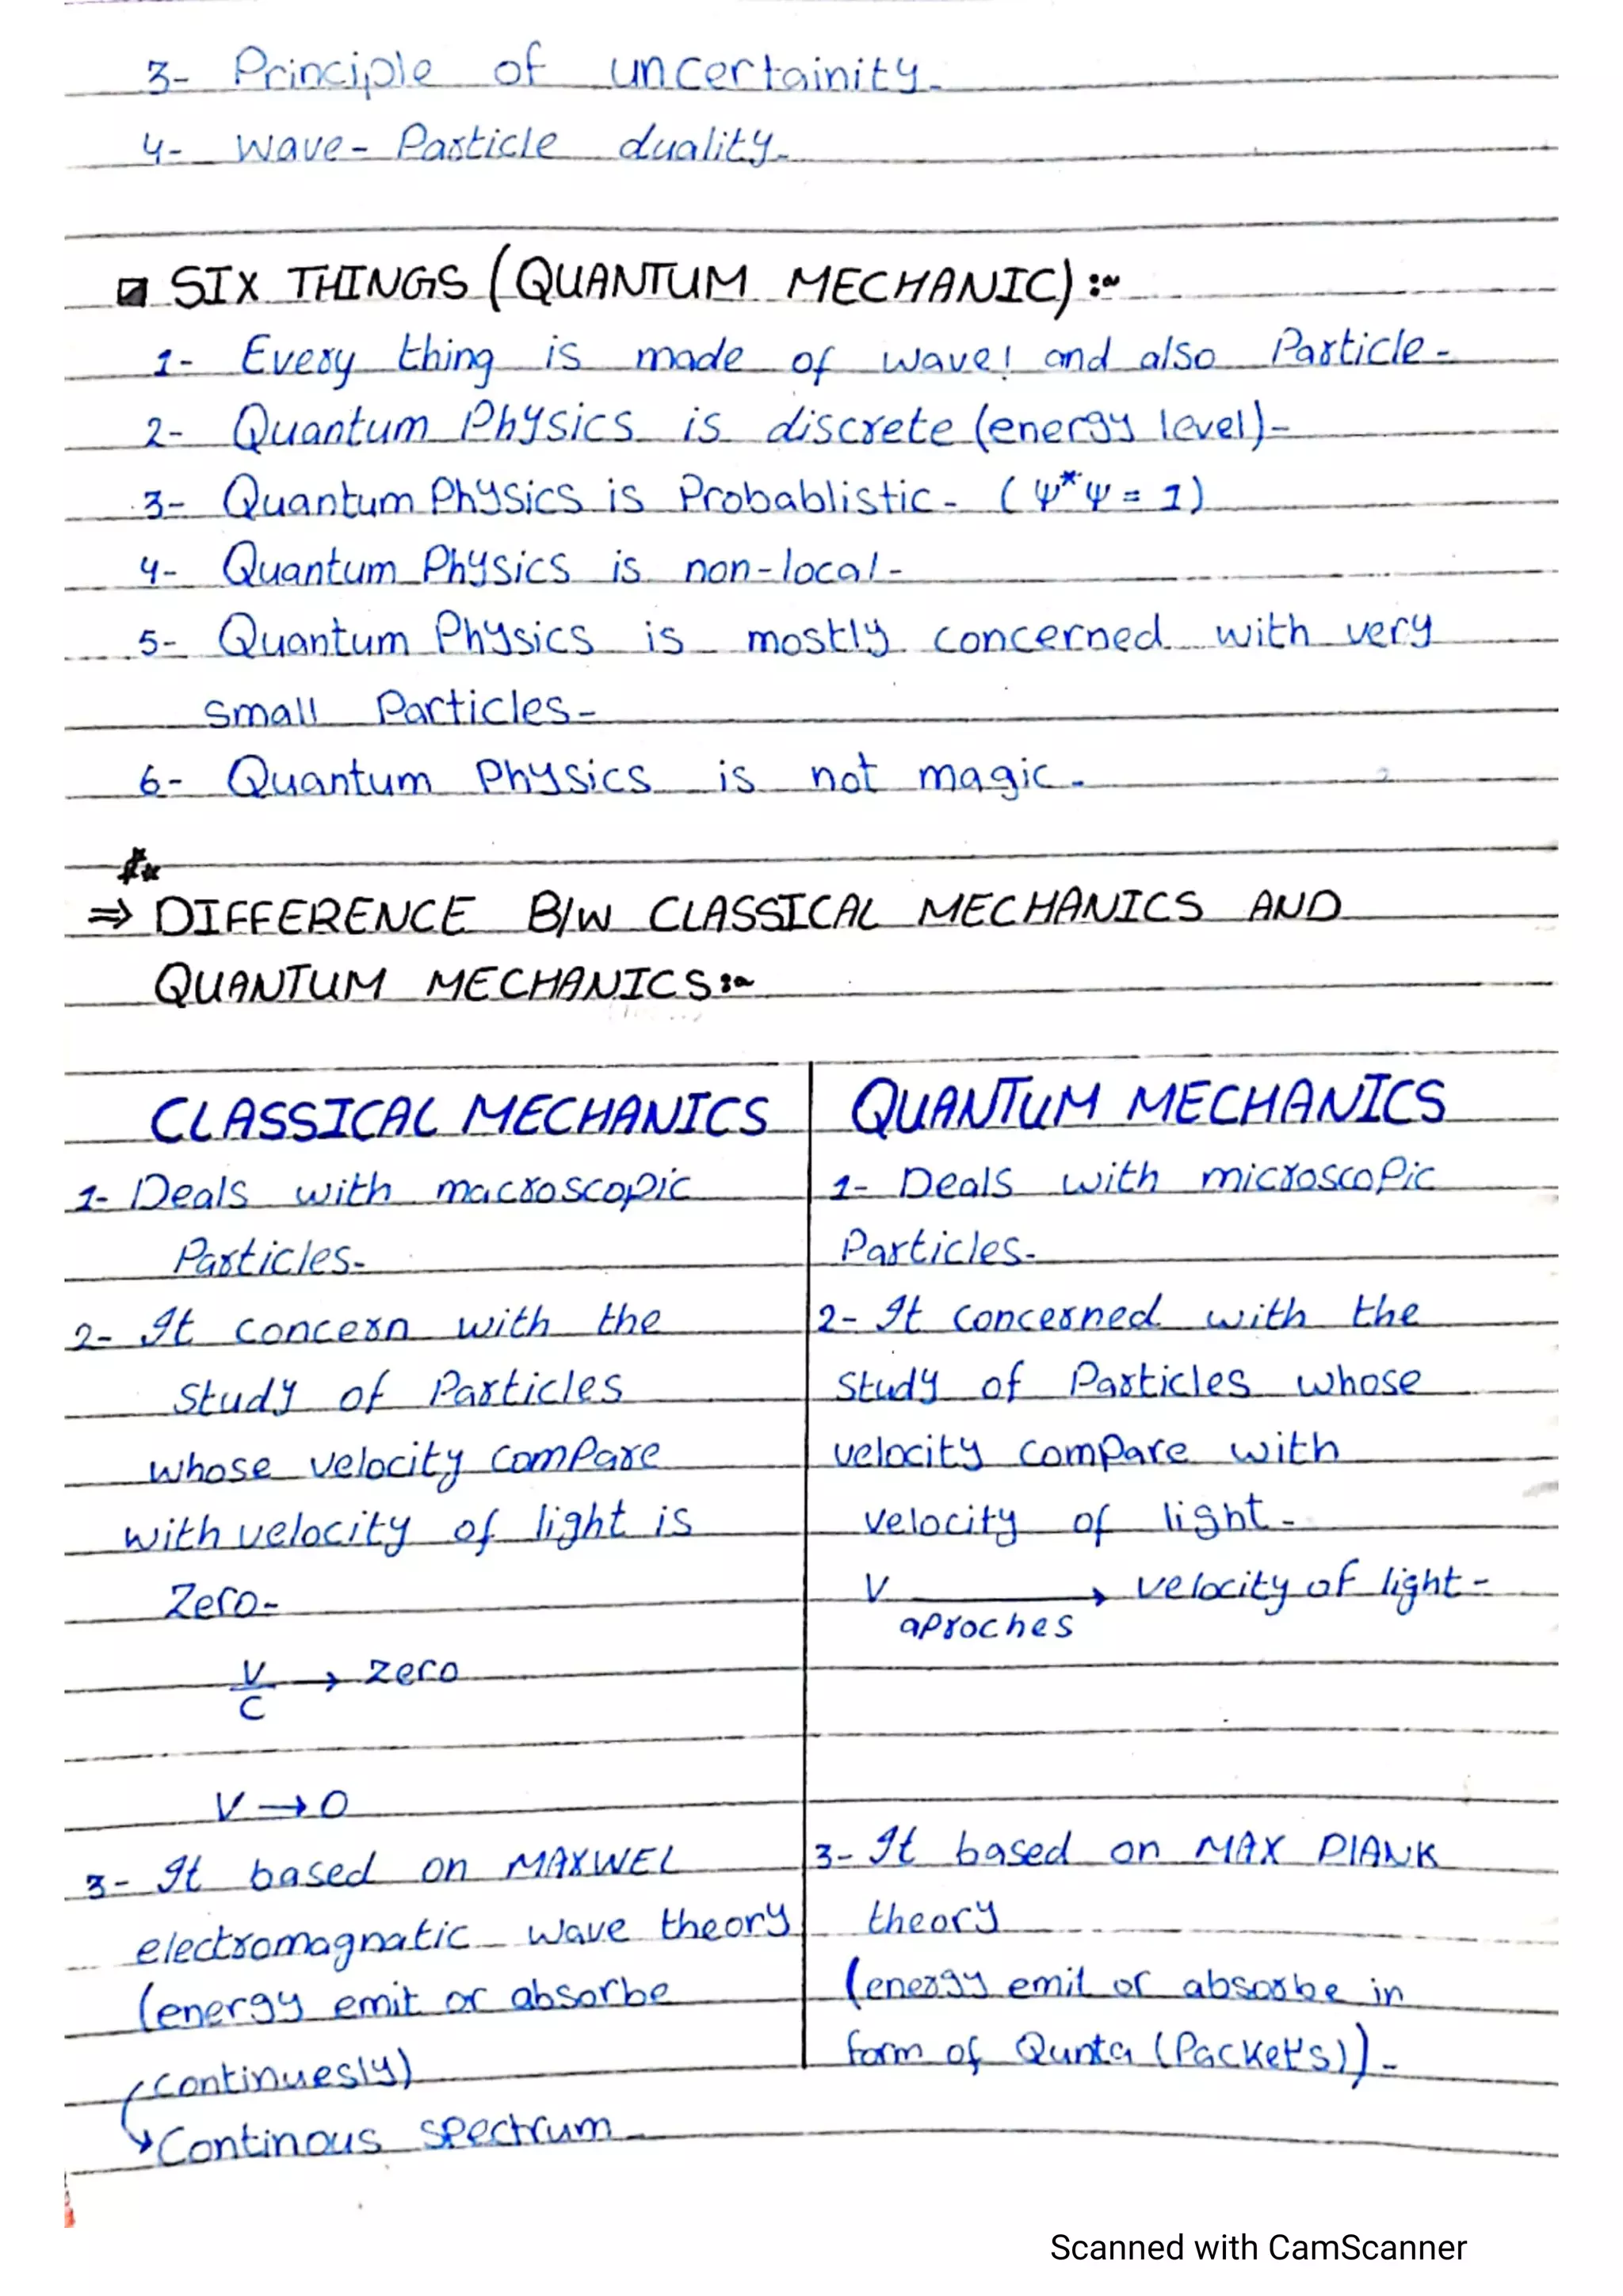 3- Principle of uncertainity-
4- Wave- Particle duality-
SIX THINGS (QUANTUM MECHANIC) :~
1- Every thing is made of wave! and also Particle-
2- Quantum Physics is discrete (energy level)-
3- Quantum Physics is Probablistic- (Ψ*Ψ = 1)
4- Quantum Physics is non-local-
5- Quantum Physics is mostly concerned with very
small Particles-
6- Quantum Physics is not magic-
⇒ DIFFERENCE B/W CLASSICAL MECHANICS AND
QUANTUM MECHANICS:~
CLASSICAL MECHANICS
1- Deals with macroscopic
Particles-
2- It concern with the
study of Particles
whose velocity compare
with velocity of light is
Zero-
V/C → zero
V → 0
3- It based on MAXWEL
electromagnatic wave theory
(energy emit or absorbe
continuesly)
↳ Continous spectrum
QUANTUM MECHANICS
1- Deals with microscopic
Particles-
2- It concerned with the
study of Particles whose
velocity compare with
velocity of light-
V → velocity of light-
aproches
3- It based on MAX PlANK
theory
(energy emit or absorbe in
form of Qunta (Packet's))-
Scanned with CamScanner